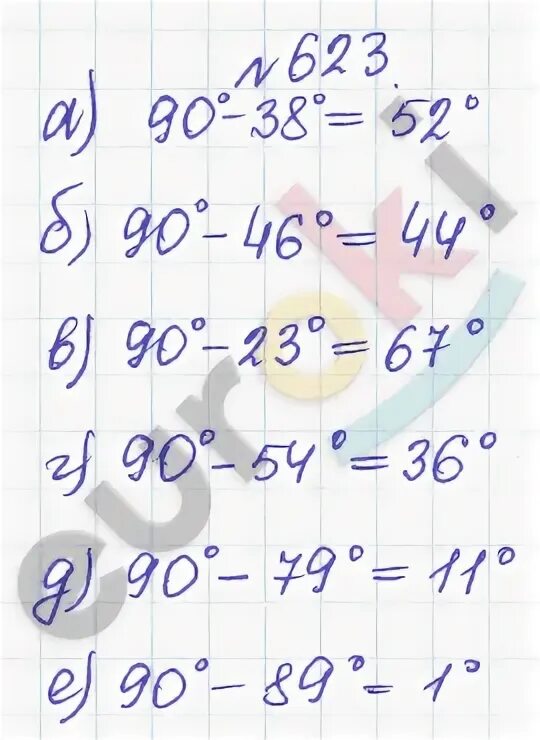 №623.
а) 90°-38°= 52°
б) 90°-46°= 44°
в) 90°-23°=67°
г) 90°-54°=36°
д) 90°- 79°= 11°
е) 90°-89°= 1°
euroki